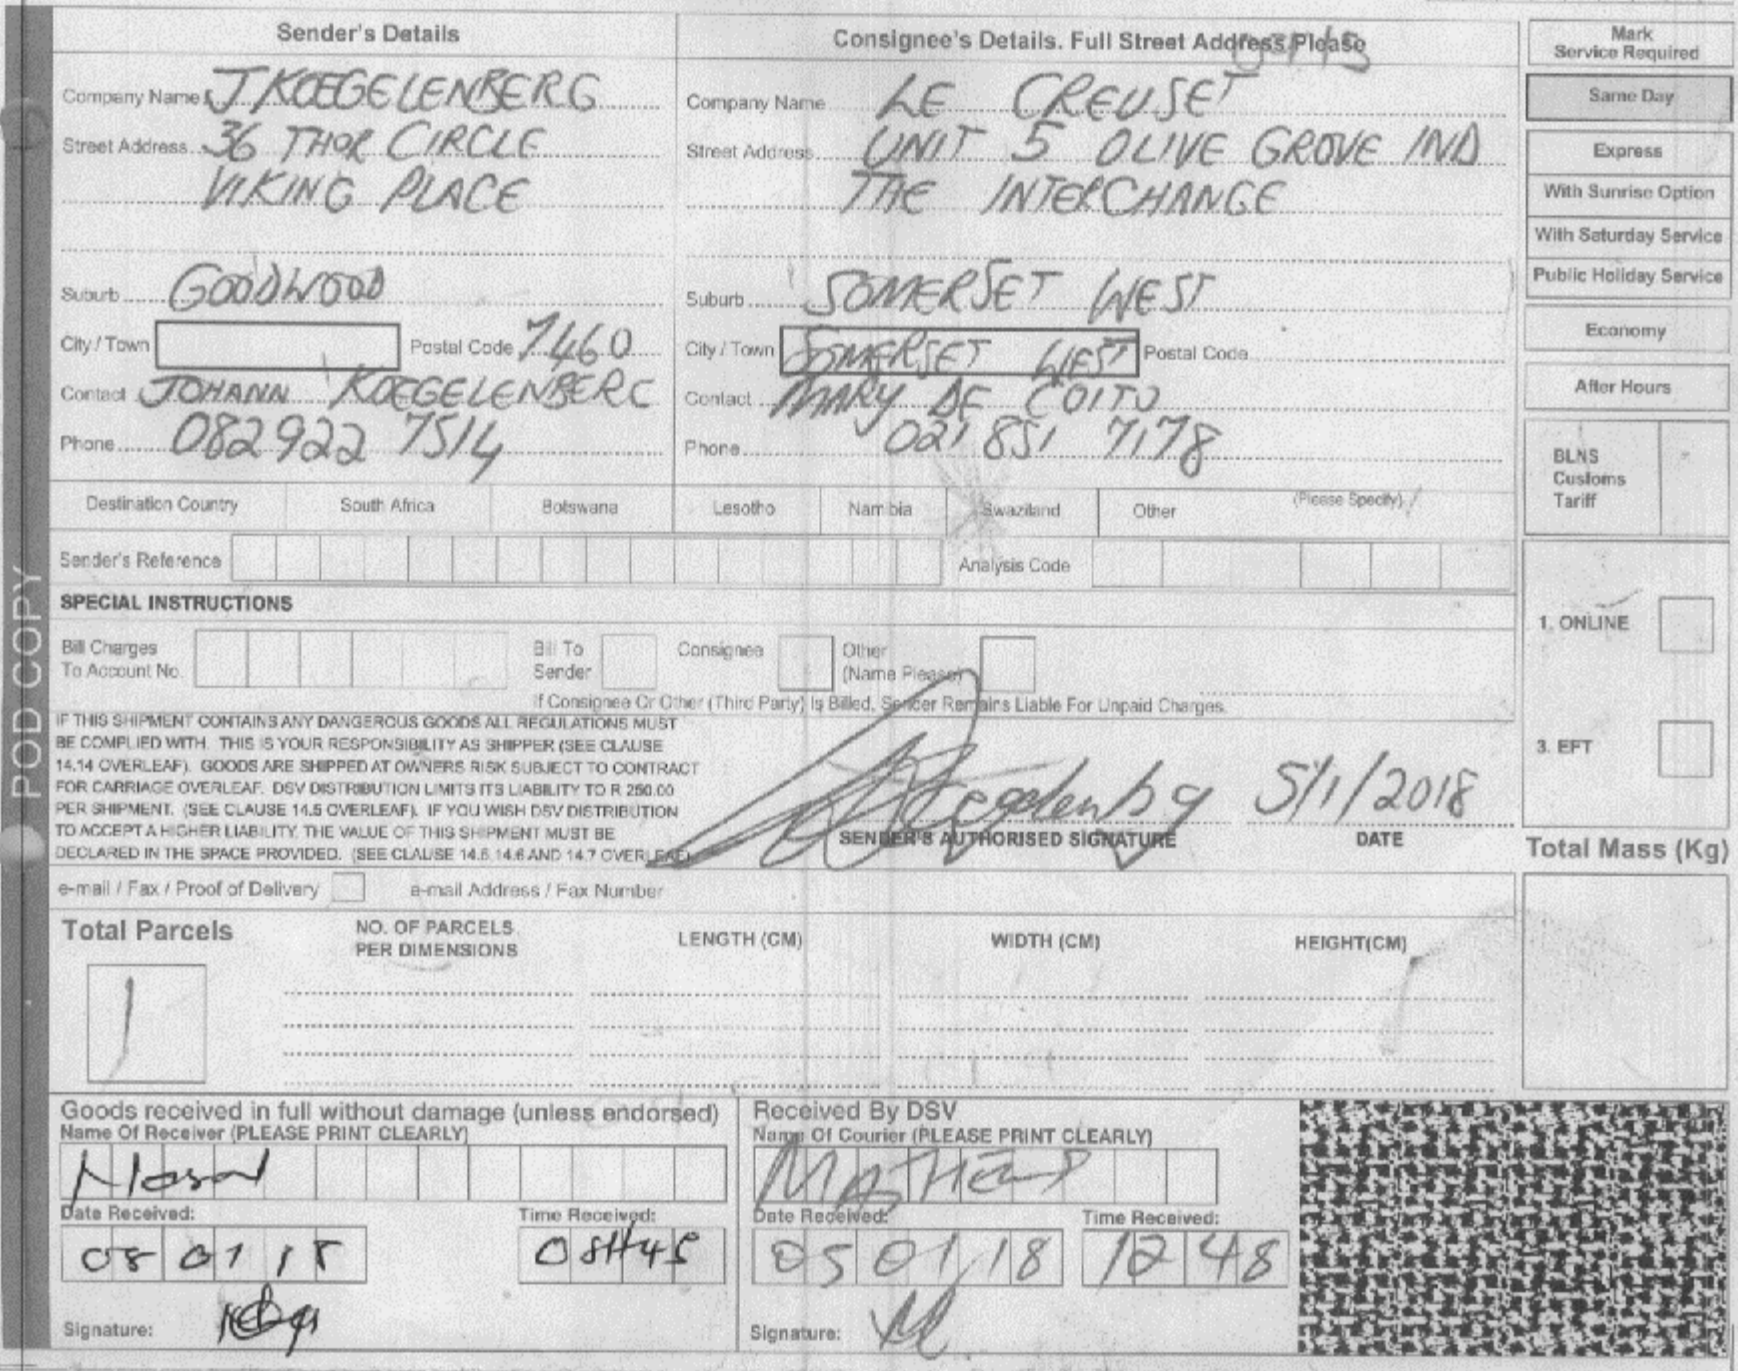 Sender's Details
Company Name J KOEGELENBERG
Street Address 36 THOR CIRCLE
VIKING PLACE
Suburb GOODWOOD
City / Town Postal Code 7460
Contact JOHANN KOEGELENBERG
Phone 082922 7514
Consignee's Details. Full Street Address Please
Company Name LE CREUSET
Street Address UNIT 5 OLIVE GROVE IND
THE INTERCHANGE
Suburb SOMERSET WEST
City / Town SOMERSET WEST Postal Code
Contact MARY DE COITO
Phone 021 851 7178
Mark
Service Required
Same Day
Express
With Sunrise Option
With Saturday Service
Public Holiday Service
Economy
After Hours
BLNS
Customs
Tariff
Destination Country South Africa Botswana Lesotho Namibia Swaziland Other (Please Specify)
Sender's Reference Analysis Code
SPECIAL INSTRUCTIONS
Bill Charges
To Account No.
Bill To
Sender
Consignee
Other
(Name Please)
If Consignee Or Other (Third Party) Is Billed, Sender Remains Liable For Unpaid Charges.
1. ONLINE
3. EFT
POD COPY
IF THIS SHIPMENT CONTAINS ANY DANGEROUS GOODS ALL REGULATIONS MUST
BE COMPLIED WITH. THIS IS YOUR RESPONSIBILITY AS SHIPPER (SEE CLAUSE
14.14 OVERLEAF). GOODS ARE SHIPPED AT OWNERS RISK SUBJECT TO CONTRACT
FOR CARRIAGE OVERLEAF. DSV DISTRIBUTION LIMITS ITS LIABILITY TO R 250.00
PER SHIPMENT. (SEE CLAUSE 14.5 OVERLEAF). IF YOU WISH DSV DISTRIBUTION
TO ACCEPT A HIGHER LIABILITY, THE VALUE OF THIS SHIPMENT MUST BE
DECLARED IN THE SPACE PROVIDED. (SEE CLAUSE 14.5, 14.6 AND 14.7 OVERLEAF)
5/1/2018
SENDER'S AUTHORISED SIGNATURE DATE
Total Mass (Kg)
e-mail / Fax / Proof of Delivery e-mail Address / Fax Number
Total Parcels
1
NO. OF PARCELS
PER DIMENSIONS
LENGTH (CM) WIDTH (CM) HEIGHT(CM)
Goods received in full without damage (unless endorsed)
Name Of Receiver (PLEASE PRINT CLEARLY)
Date Received: Time Received:
08 01 18 08H45
Signature:
Received By DSV
Name Of Courier (PLEASE PRINT CLEARLY)
Date Received: Time Received:
05 01 18 12 48
Signature: